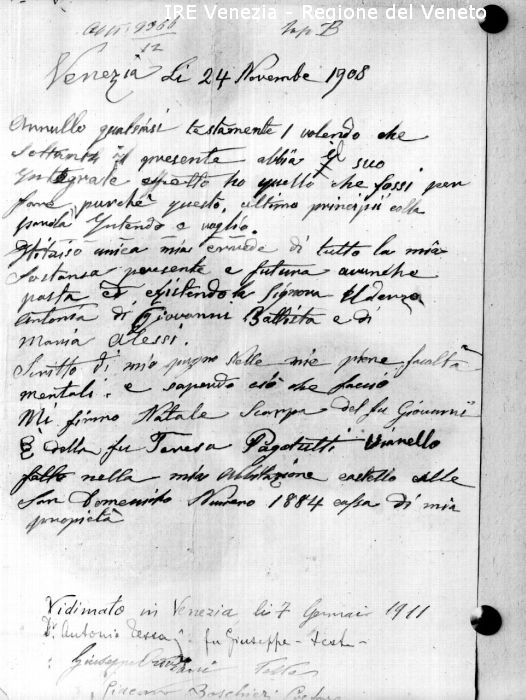 IRE Venezia - Regione del Veneto
12
Venezia Li 24 Novembe 1908
Annullo qualsiasi testamente / volendo che
soltanto il presente abbia il suo
Integrale effetto ho quello che fossi per
fare purchè questo, ultimo principii colla
parola Intendo e voglio.
unica mia erede di tutto la mia
Sostansa presente e futura avunche
posta ed esistendo la Signora Eldenza
Antonia di Giovanni Battista e di
Maria Alessi.
Scritto di mio pugno nelle mie piene facoltà
mentali. e sapendo ciò che faccio
Mi firmo Natale Scarpa del fu Giovanni
E della fu Teresa Pagotutti Vianello
fatto nella mia Abitazione castello calle
San Domenico Numero 1884 cassa di mia
propietà
Vidimato in Venezia li 7 Gennaio 1911
Dr Antonio fu Giuseppe - Teste -
Giuseppe Teste
Giacomo Boschieri